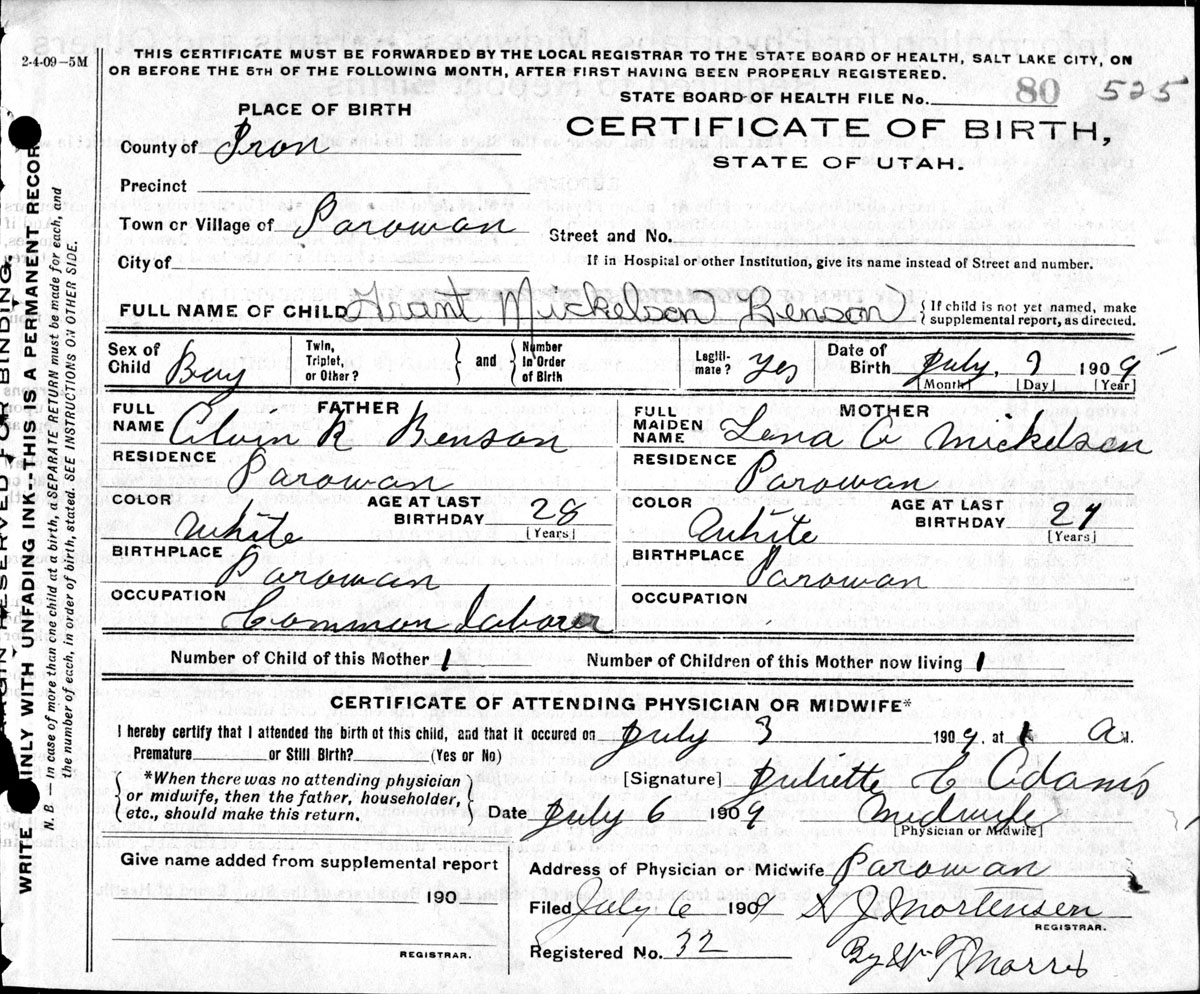 2-4-09-5M
THIS CERTIFICATE MUST BE FORWARDED BY THE LOCAL REGISTRAR TO THE STATE BOARD OF HEALTH, SALT LAKE CITY, ON
OR BEFORE THE 5TH OF THE FOLLOWING MONTH, AFTER FIRST HAVING BEEN PROPERLY REGISTERED.
STATE BOARD OF HEALTH FILE No. 80 525
PLACE OF BIRTH
CERTIFICATE OF BIRTH,
STATE OF UTAH.
County of Iron
Precinct
Town or Village of Parowan
Street and No.
City of
If in Hospital or other Institution, give its name instead of Street and number.
FULL NAME OF CHILD Grant Mickelson Benson {If child is not yet named, make
supplemental report, as directed.
Sex of Child Boy Twin, Triplet, or Other? } and { Number In Order of Birth Legiti-mate? Yes Date of Birth July, 190 9
[Month] [Day] [Year]
FATHER
FULL NAME Alvin R Benson
RESIDENCE
Parowan
COLOR White AGE AT LAST BIRTHDAY 28
[Years]
BIRTHPLACE
Parowan
OCCUPATION
Common Laborer
MOTHER
FULL MAIDEN NAME Lena Mickelsen
RESIDENCE
Parowan
COLOR White AGE AT LAST BIRTHDAY
[Years]
BIRTHPLACE
Parowan
OCCUPATION
Number of Child of this Mother 1 Number of Children of this Mother now living 1
CERTIFICATE OF ATTENDING PHYSICIAN OR MIDWIFE*
I hereby certify that I attended the birth of this child, and that it occured on July 3 190 9, at 1 A M.
Premature or Still Birth? (Yes or No)
{*When there was no attending physician
or midwife, then the father, householder,
etc., should make this return.}
[Signature] Juliette C Adams
Date July 6 190 9 Midwife
[Physician or Midwife]
Give name added from supplemental report
190
REGISTRAR.
Address of Physician or Midwife Parowan
Filed July 6 190 9 J Mortensen
REGISTRAR.
Registered No. 32 By Morris
RESERVED FOR BINDING.
WRITE PLAINLY WITH UNFADING INK--THIS IS A PERMANENT RECORD
N. B. — In case of more than one child at a birth, a SEPARATE RETURN must be made for each, and
the number of each, in order of birth, stated. SEE INSTRUCTIONS ON OTHER SIDE.